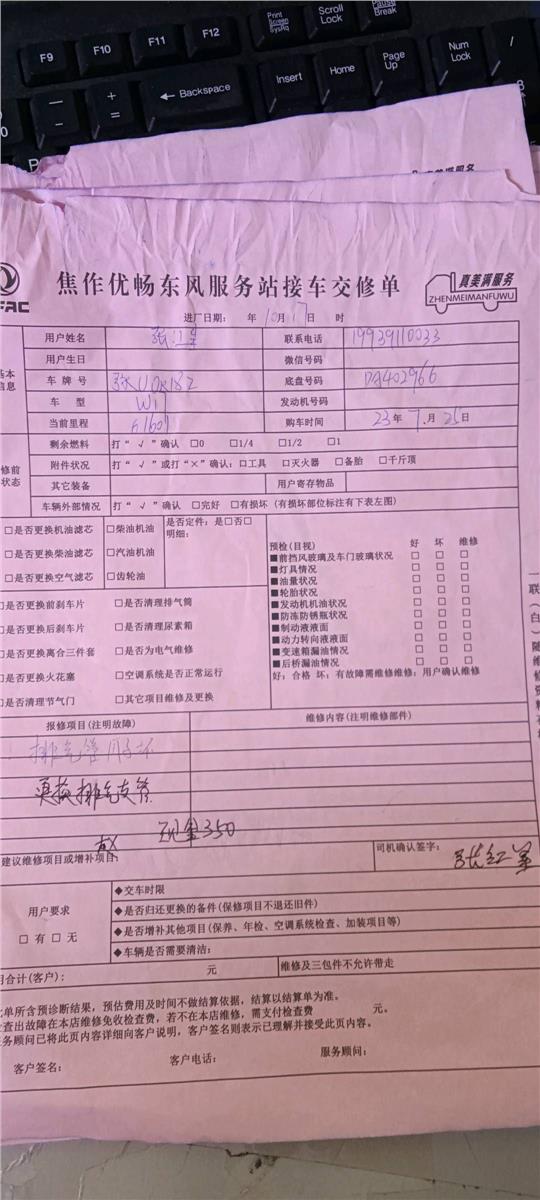 F9 F10 F11 F12 Print Screen SysRq Scroll Lock Pause Break
Backspace Insert Home Page Up Num Lock /
FAC
焦作优畅东风服务站接车交修单
真美满服务
ZHENMEIMANFUWU
进厂日期: 年 10月 17日 时
用户姓名 联系电话 19939110033
用户生日 微信号码
车牌号 底盘号码 DA402966
车 型 发动机号码
当前里程 购车时间 23年 7.月 25日
剩余燃料 打“√”确认 □0 □1/4 □1/2 □1
附件状况 打“√”或打“×”确认: □工具 □灭火器 □备胎 □千斤顶
其它装备 用户寄存物品
车辆外部情况 打“√”确认 □完好 □有损坏 (有损坏部位标注有下表左图)
□是否更换机油滤芯 □柴油机油 是否定件: 是□否□
明细:
□是否更换柴油滤芯 □汽油机油
□是否更换空气滤芯 □齿轮油
预检(目视) 好 坏 维修
■前挡风玻璃及车门玻璃状况 □ □ □
■灯具情况 □ □ □
■油量状况 □ □ □
■轮胎状况 □ □ □
■发动机机油状况 □ □ □
■防冻防锈瓶状况 □ □ □
■制动液液面 □ □ □
■动力转向液液面 □ □ □
■变速箱漏油情况 □ □ □
■后桥漏油情况 □ □ □
好: 合格 坏: 有故障需维修维修: 用户确认维修
□是否更换前刹车片 □是否清理排气筒
□是否更换后刹车片 □是否清理尿素箱
□是否更换离合三件套 □是否为电气维修
□是否更换火花塞 □空调系统是否正常运行
□是否清理节气门 □其它项目维修及更换
报修项目(注明故障) 维修内容(注明维修部件)
更换排气支管
现金350
建议维修项目或增补项目: 司机确认签字: 张红军
用户要求
□ 有 □ 无
◆交车时限
◆是否归还更换的备件(保修项目不退还旧件)
◆是否增补其他项目(保养、年检、空调系统检查、加装项目等)
◆车辆是否需要清洁:
用合计(客户): 元 维修及三包件不允许带走
此单所含预诊断结果，预估费用及时间不做结算依据，结算以结算单为准。
检查出故障在本店维修免收检查费，若不在本店维修，需支付检查费 元。
服务顾问已将此页内容详细向客户说明，客户签名则表示已理解并接受此页内容。
客户签名: 客户电话: 服务顾问: